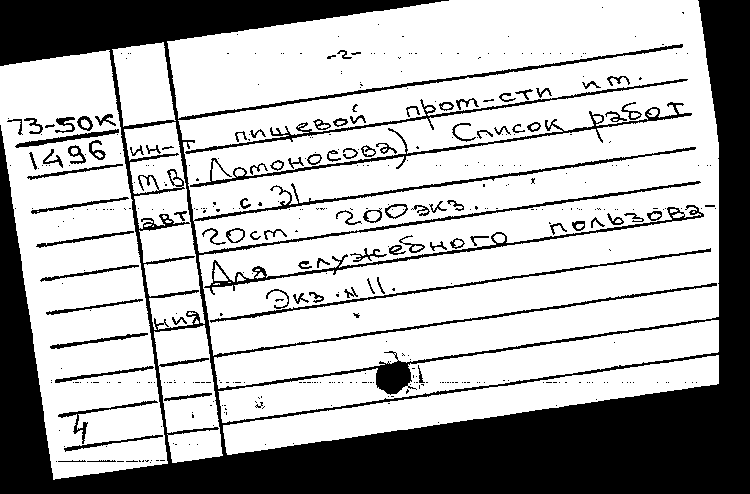 -2-
73-50К
1496
ин-т пищевой пром-сти им.
М.В. Ломоносова). Список работ
авт.: с. 31.
20 ст. 200 экз.
Для служебного пользова-
ния. Экз. № 11.
4